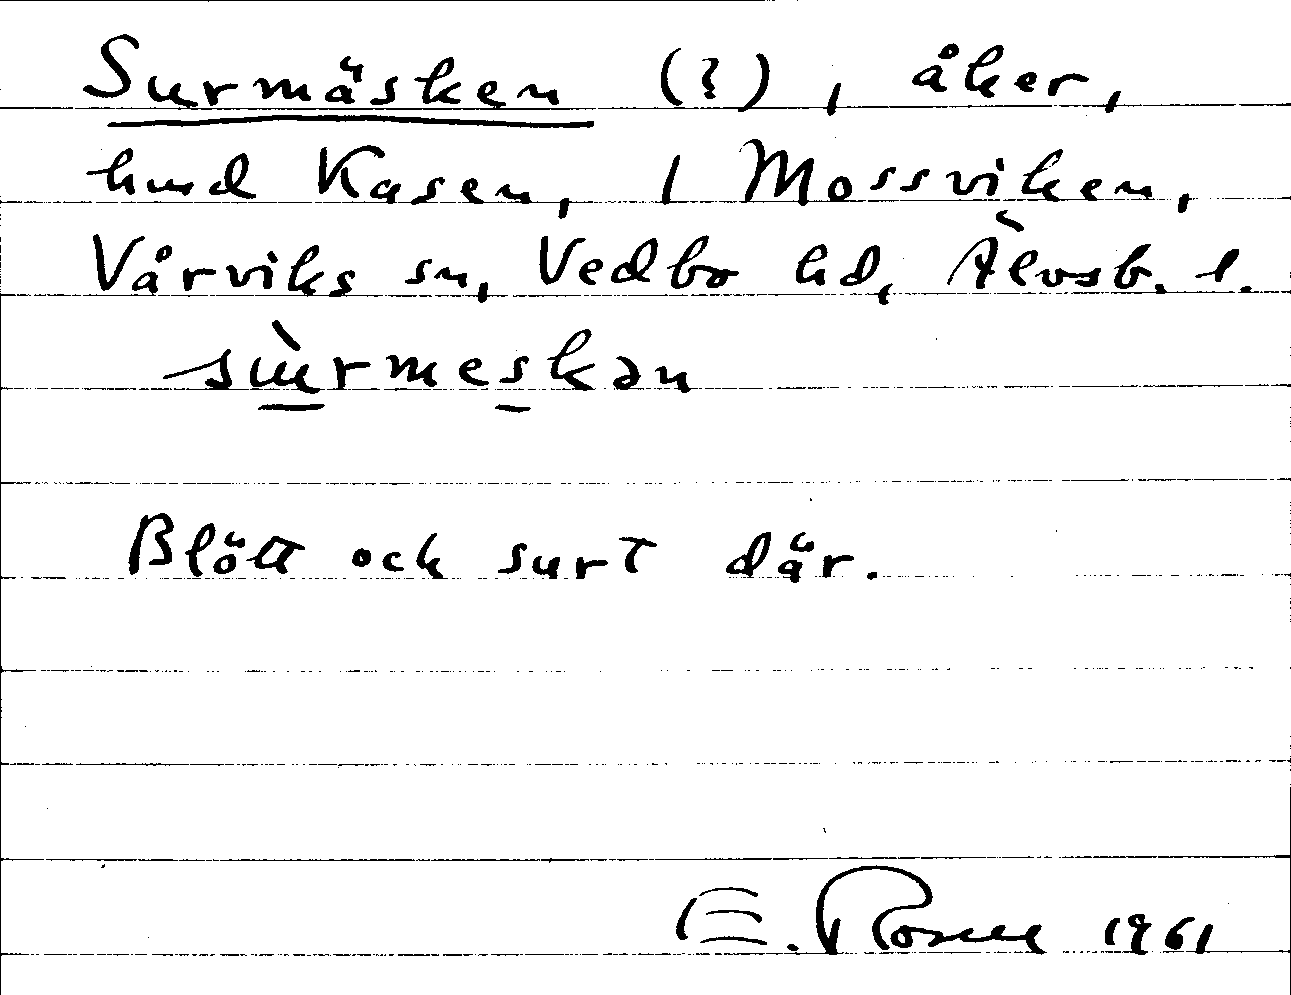 Surmäsken (?), åker,
hmd Kasen, 1 Mossviken,
Vårviks sn, Vedbo hd, Älvsb. l.
sùrmeskən
Blött och surt där.
E. Rosell 1961